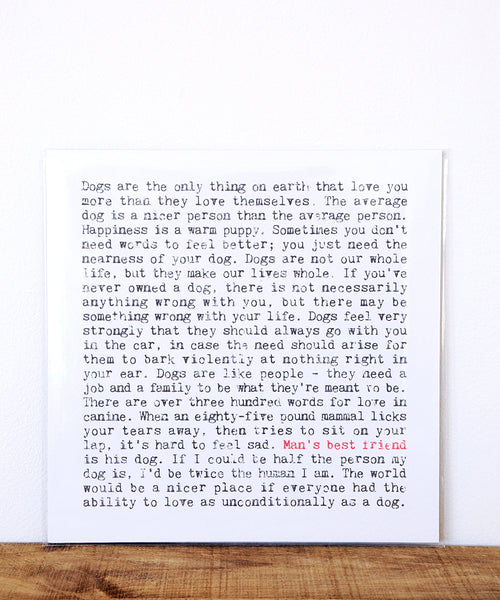 Dogs are the only thing on earth that love you
more than they love themselves. The average
dog is a nicer person than the average person.
Happiness is a warm puppy. Sometimes you don't
need words to feel better; you just need the
nearness of your dog. Dogs are not our whole
life, but they make our lives whole. If you've
never owned a dog, there is not necessarily
anything wrong with you, but there may be
something wrong with your life. Dogs feel very
strongly that they should always go with you
in the car, in case the need should arise for
them to bark violently at nothing right in
your ear. Dogs are like people - they need a
job and a family to be what they're meant to be.
There are over three hundred words for love in
canine. When an eighty-five pound mammal licks
your tears away, then tries to sit on your
lap, it's hard to feel sad. Man's best friend
is his dog. If I could be half the person my
dog is, I'd be twice the human I am. The world
would be a nicer place if everyone had the
ability to love as unconditionally as a dog.